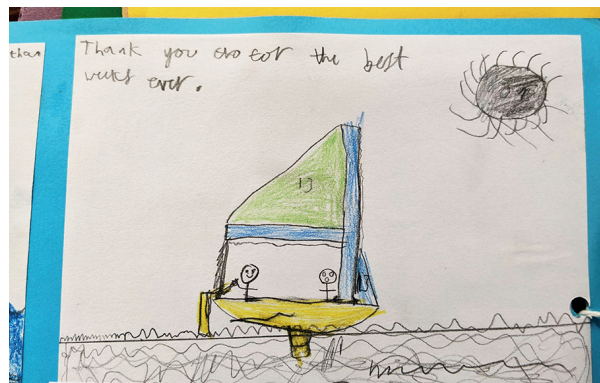 than
Thank you for the best
weeks ever.
13